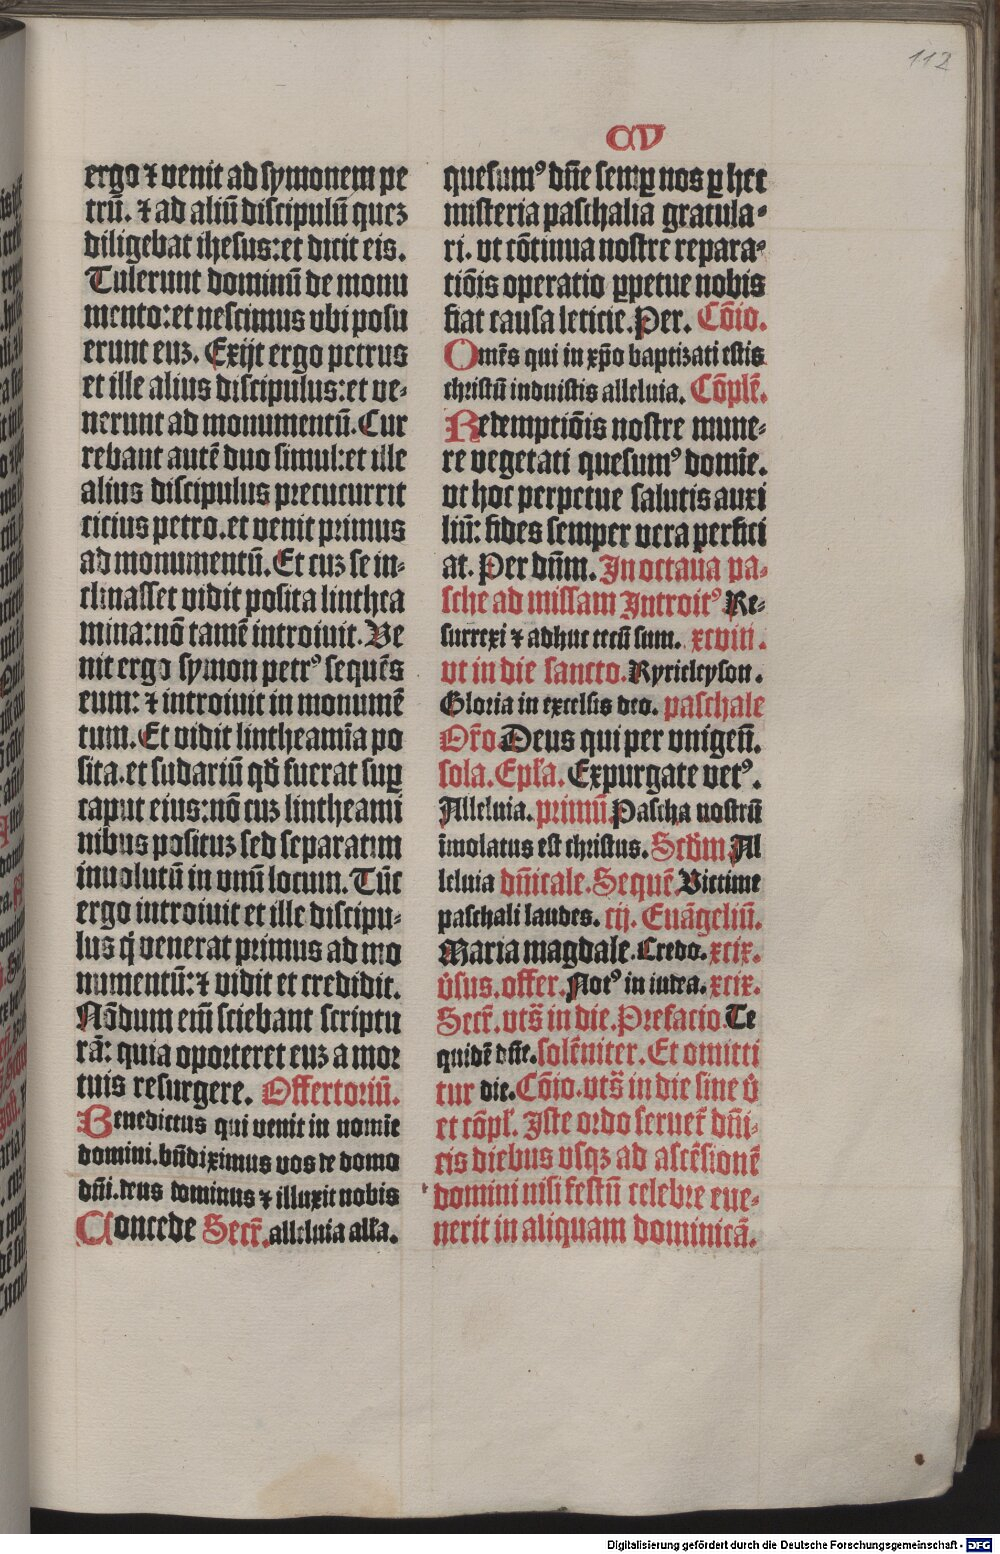 112
CV
ergo ⁊ venit ad symonem pe
trū. ⁊ ad aliū discipulū quez
diligebat ihesus: et dicit eis.
Tulerunt dominū de monu
mento: et nescimus vbi posu
erunt euz. Exijt ergo petrus
et ille alius discipulus: et ve-
nerunt ad monumentū. Cur
rebant autē duo simul: et ille
alius discipulus precucurrit
cicius petro. et venit primus
ad monumentū. Et cuz se in-
clinasset vidit posita linthea
mina: nō tamē introiuit. Ve
nit ergo symon petrꝰ sequēs
eum: ⁊ introiuit in monumē
tum. Et vidit lintheamīa po
sita. et sudariū qd̄ fuerat suꝑ
caput eius: nō cuz lintheami
nibus posituz sed separatim
inuolutū in vnū locum. Tūc
ergo introiuit et ille discipu-
lus q̇ venerat primus ad mo
numentū: ⁊ vidit et credidit.
Nōdum em̄ sciebant scriptu
rā: quia oporteret euz a mor
tuis resurgere. Offertoriū.
Benedictus qui venit in nomīe
domini. bn̄diximus vos de domo
dn̄i. deus dominus ⁊ illuxit nobis
Concede Secr̄. alleluia alła.
quesumꝰ dn̄e semꝑ nos ꝑ hec
misteria paschalia gratula-
ri. vt cōtinua nostre repara-
tiōis operatio ꝑpetue nobis
fiat causa leticie. Per. Cōio.
Omēs qui in xp̄o baptizati estis
christū induistis alleluia. Cōplē.
Redemptiōis nostre mune-
re vegetati quesumꝰ domīe.
vt hoc perpetue salutis auxi
liū: fides semper vera perfici
at. Per dn̄m. In octaua pa-
sche ad missam Introitꝰ Re-
surrexi ⁊ adhuc tecū sum. xcviii.
vt in die sancto. Kyrieleyson.
Gloria in excelsis deo. paschale
Or̄o Deus qui per vnigen̄.
sola. Epła. Expurgate vetꝰ.
Alleluia. primū Pascha nostrū
īmolatus est christus. Scd̄m Al
leluia dn̄icale. Sequē. Victime
paschali laudes. cij. Euāgeliū.
Maria magdale. Credo. xcix.
v̇sus. offer. Notꝰ in iudea. xcix.
Secr̄. vts̄ in die. Prefacio. Te
quidē dn̄e. solēniter. Et omitti
tur die. Cōio. vts̄ in die sine v̇
et cōpł. Iste ordo seruet̄ dn̄i-
cis diebus vsqz ad ascēsionē
domini nisi festū celebre eue-
nerit in aliquam dominicā.
Digitalisierung gefördert durch die Deutsche Forschungsgemeinschaft - DFG